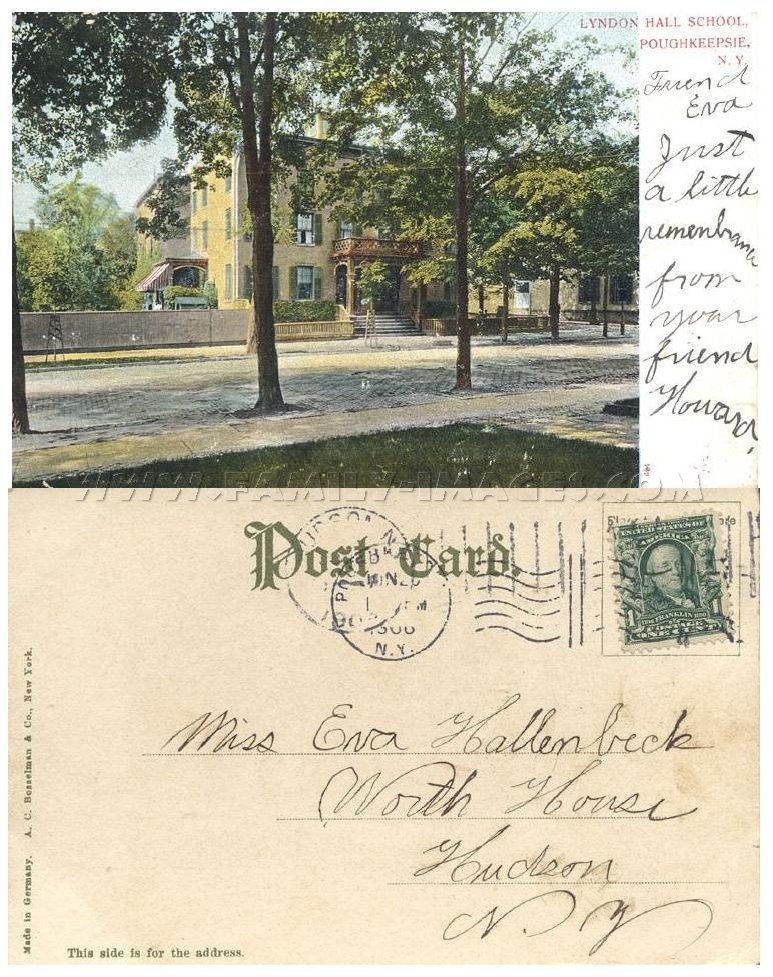 LYNDON HALL SCHOOL,
POUGHKEEPSIE,
N. Y.
Friend
Eva
Just
a little
remembrance
from
your
friend
Howard.
WWW.FAMILY-IMAGES.COM
Post Card.
HUDSON N.
1906
N.Y.
UNITED STATES OF
AMERICA
1 FRANKLIN 1
POSTAGE
ONE CENT
Miss Eva Hallenbeck
Worth House
Hudson
N. Y.
Made in Germany. A. C. Bosselman & Co., New York.
This side is for the address.